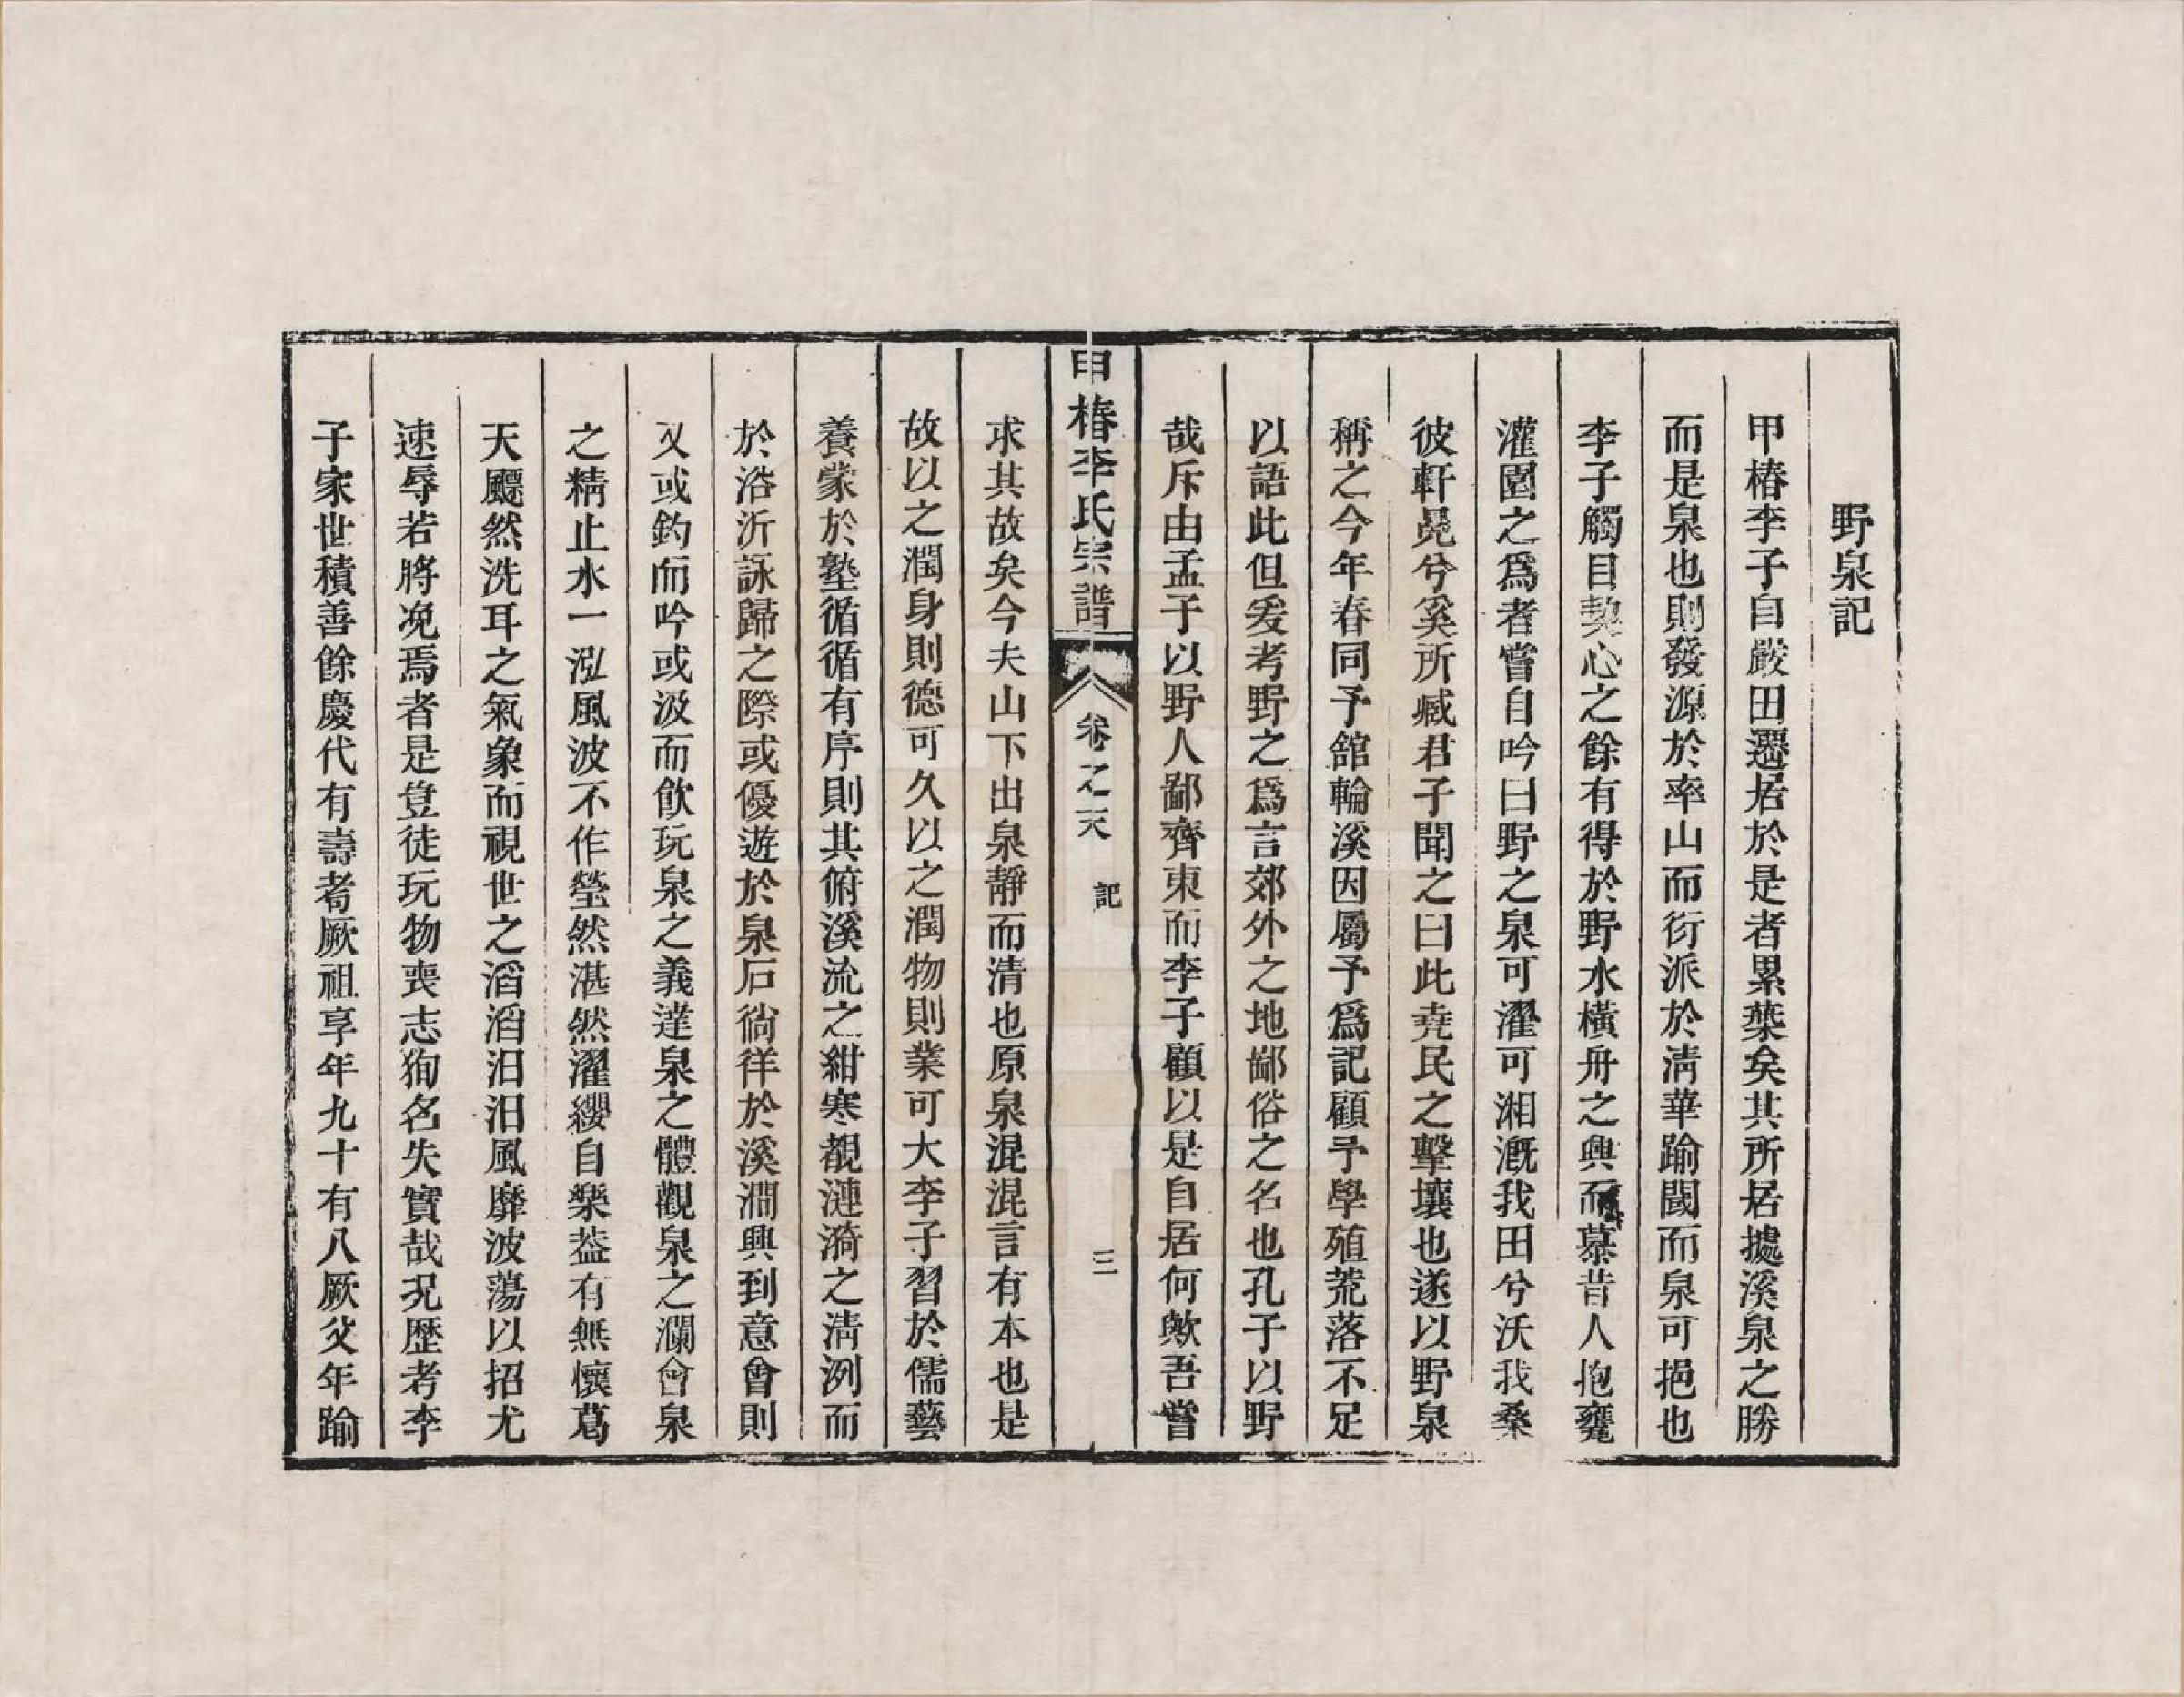 野泉記
甲椿李子自嚴田遷居於是者累葉矣其所居據溪泉之勝
而是泉也則發源於率山而衍派於清華踰閫而泉可挹也
李子觸目契心之餘有得於野水橫舟之興而慕昔人抱甕
灌園之爲者嘗自吟曰野之泉可濯可湘漑我田兮沃我桑
彼軒冕兮奚所臧君子聞之曰此堯民之擊壤也遂以野泉
稱之今年春同予館輪溪因屬予爲記顧予學殖荒落不足
以語此但爰考野之爲言郊外之地鄙俗之名也孔子以野
哉斥由孟子以野人鄙齊東而李子顧以是自居何歟吾嘗
甲椿李氏宗譜 卷之天 記 三
求其故矣今夫山下出泉靜而清也原泉混混言有本也是
故以之潤身則德可久以之潤物則業可大李子習於儒藝
養蒙於塾循循有序則其俯溪流之紺寒覩漣漪之清冽而
於浴沂詠歸之際或優遊於泉石徜徉於溪澗興到意會則
又或釣而吟或汲而飲玩泉之義達泉之體觀泉之瀾會泉
之精止水一泓風波不作瑩然湛然濯纓自樂葢有無懷葛
天飀然洗耳之氣象而視世之滔滔汩汩風靡波蕩以招尤
速辱若將浼焉者是豈徒玩物喪志狥名失實哉況歷考李
子家世積善餘慶代有壽耈厥祖享年九十有八厥父年踰